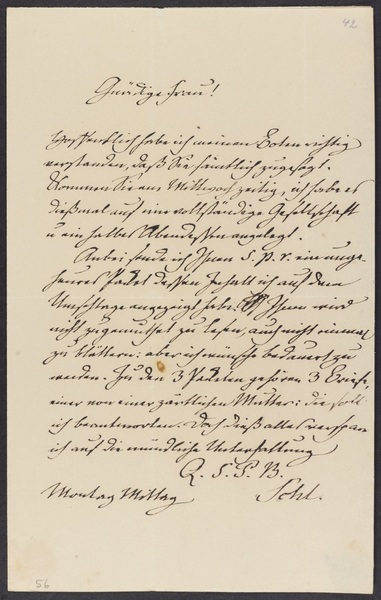 42
Gnädige Frau!
Hoffentlich habe ich meinen Boten richtig
verstanden, daß Sie sämtlich zugesagt.
Kommen Sie am Mittwoch zeitig, ich habe es
dießmal auf eine vollständige Gesellschaft
u ein halbes Abendessen angelegt.
Anbei sende ich Ihnen S. P. r. ein unge-
heures Packet dessen Inhalt ich auf dem
Umschlage angezeigt habe. Ihnen wird
nicht zugemuthet zu lesen, auch nicht einmal
zu blättern: aber ich wünsche bedauert zu
werden. Zu den 3 Packeten gehören 3 Briefe,
einer von einer zärtlichen Mutter: die soll
ich beantworten. Doch dieß alles verspare
ich auf die mündliche Unterhaltung
Q. S. P. B.
Montag Mittag Schl.
56